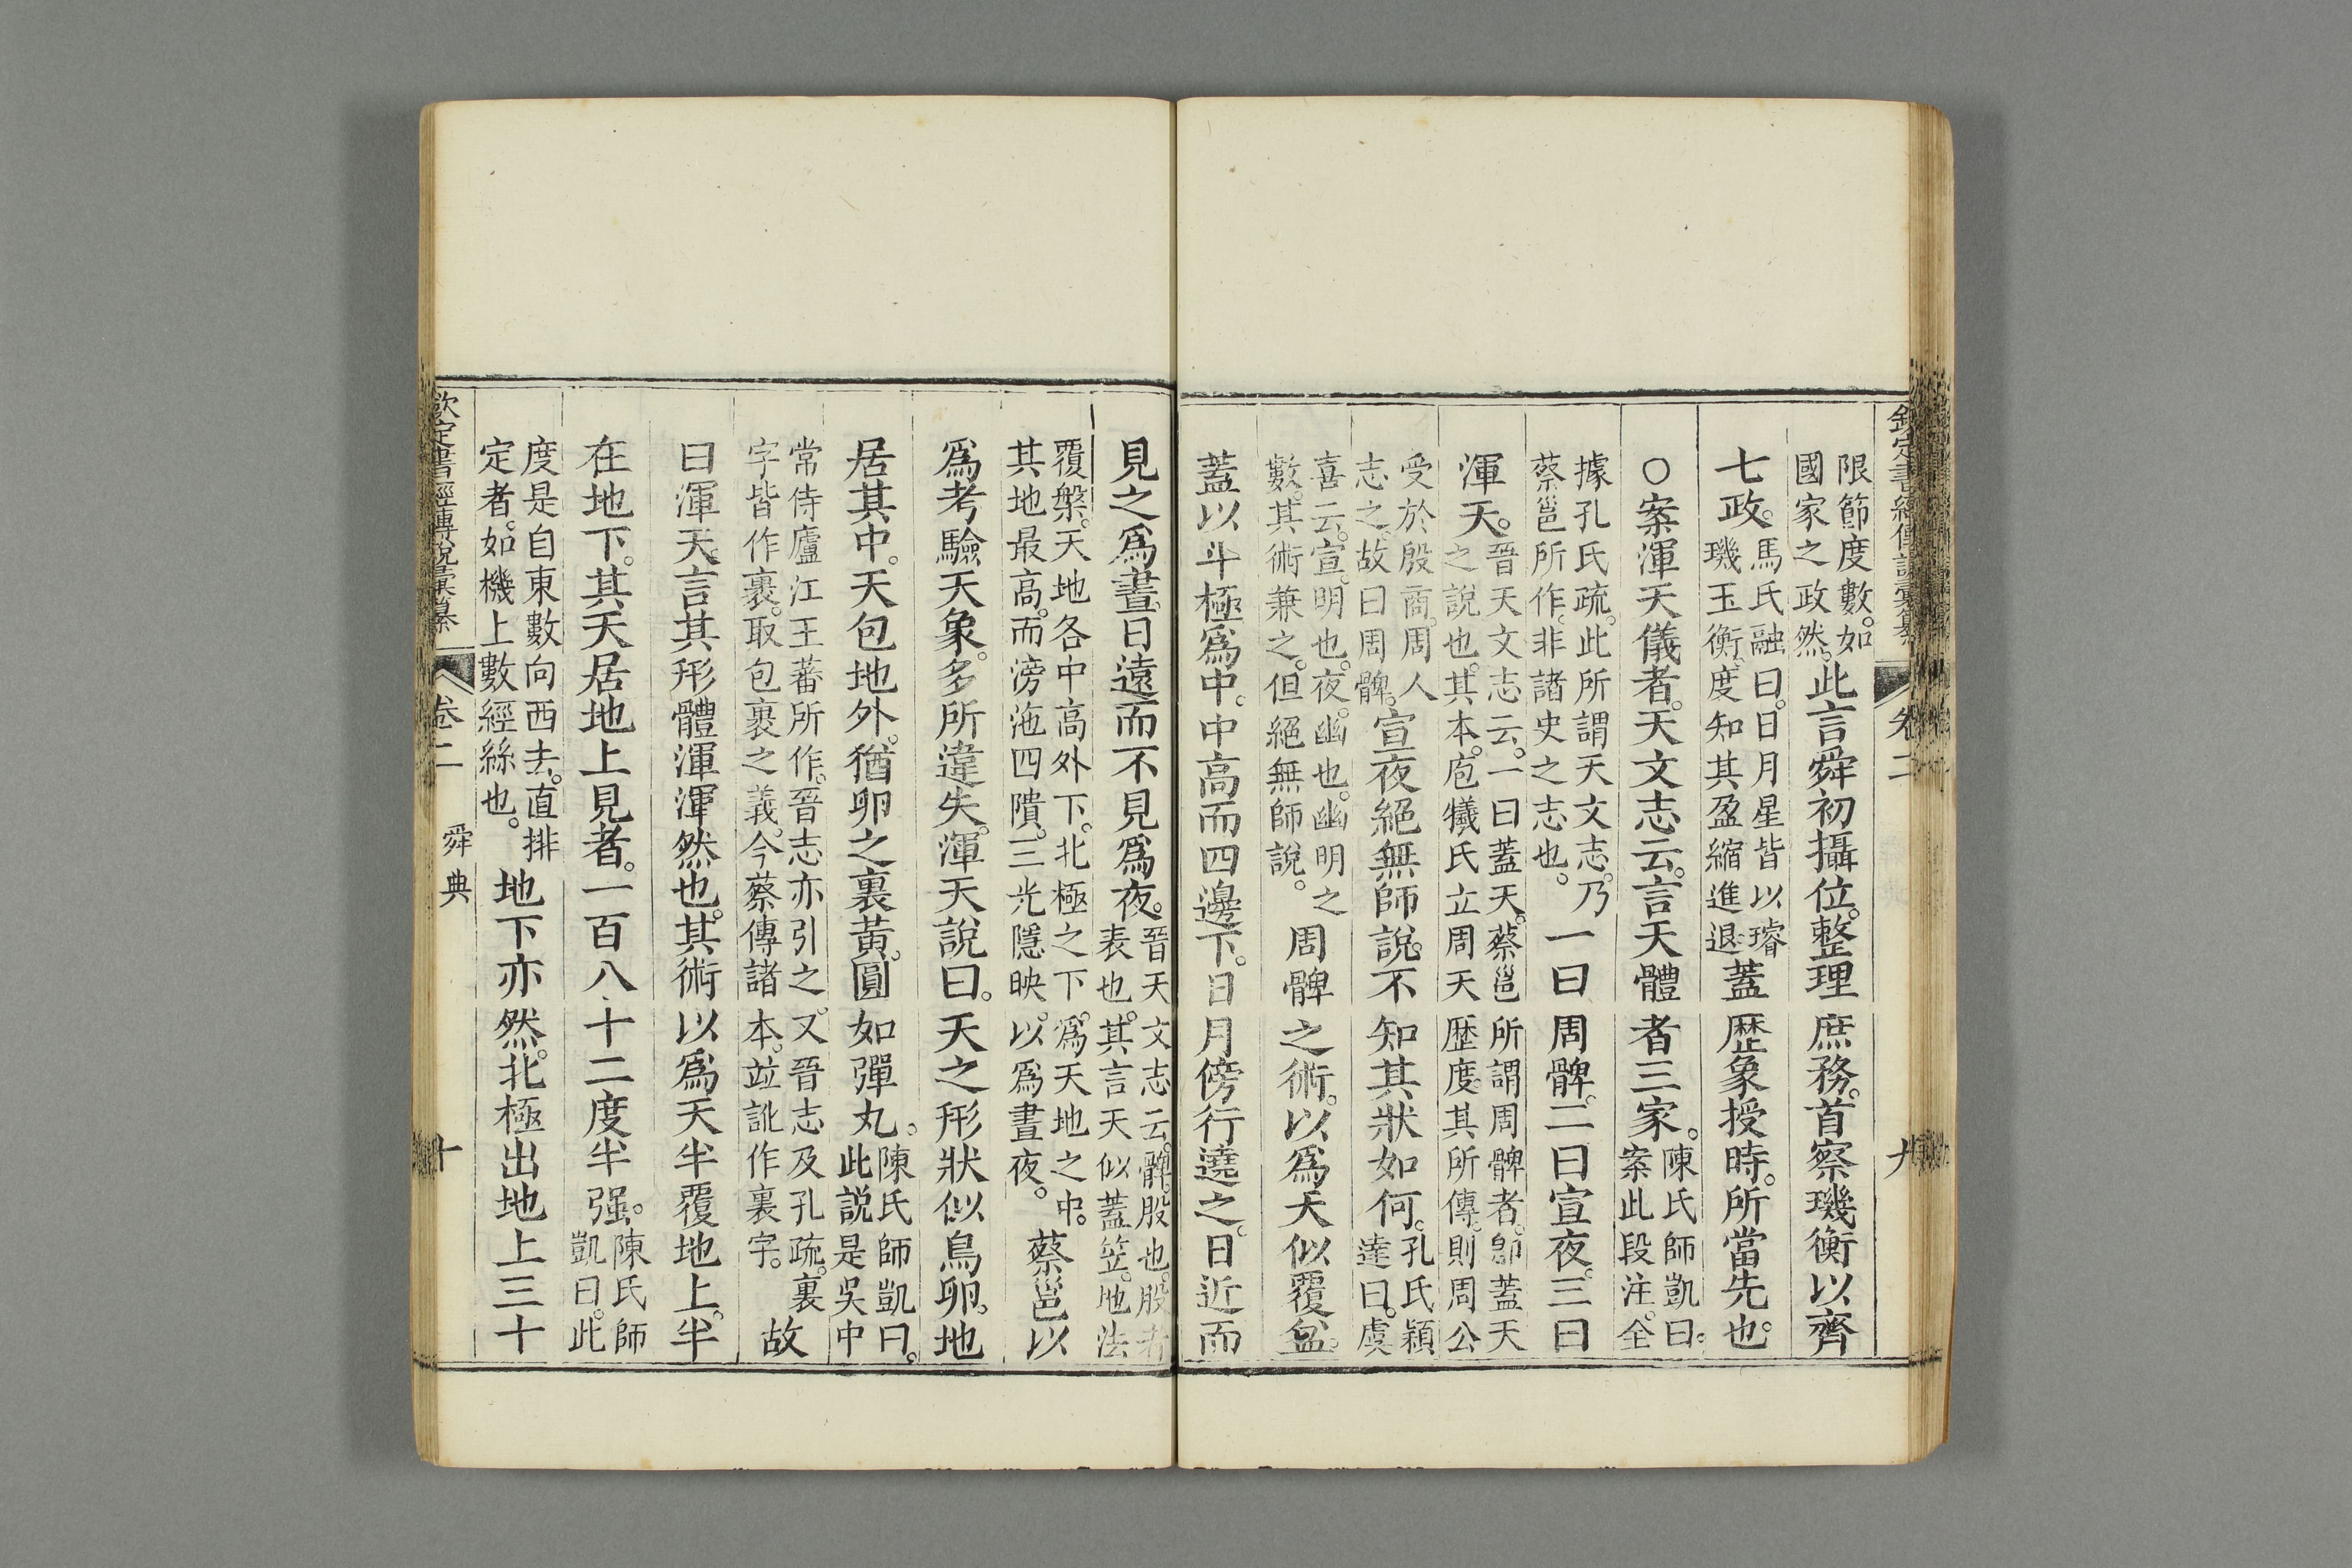 限節度數。如
國家之政然。此言舜初攝位。整理庶務。首察璣衡以齊
七政。馬氏融曰。日月星皆以璿
璣玉衡。度知其盈縮進退蓋歷象授時。所當先也。
○案渾天儀者。天文志云。言天體者三家。陳氏師凱曰。
案此段注。全
據孔氏疏。此所謂天文志。乃
蔡邕所作。非諸史之志也。一曰周髀。二曰宣夜。三曰
渾天。晉天文志云。一曰蓋天。蔡邕所謂周髀者。卽蓋天
之說也。其本。庖犧氏立周天歷度。其所傳。則周公
受於殷商。周人
志之。故曰周髀。宣夜絕無師說。不知其狀如何。孔氏穎
達曰。虞
喜云。宣。明也。夜。幽也。幽明之
數。其術兼之。但絕無師說。周髀之術。以爲天似覆盆。
蓋以斗極爲中。中高而四邊下。日月傍行遶之。日近而
見之爲晝。日遠而不見爲夜。晉天文志云。髀。股也。股者
表也。其言天似蓋笠。地法
覆槃。天地各中高外下。北極之下。爲天地之中。
其地最高。而滂沲四隤。三光隱映。以爲晝夜。蔡邕以
爲考驗天象。多所違失。渾天說曰。天之形狀似鳥卵。地
居其中。天包地外。猶卵之裏黃。圓如彈丸。陳氏師凱曰。
此説是吳中
常侍廬江王蕃所作。晉志亦引之。又晉志及孔疏。裏
字皆作裹。取包裹之義。今蔡傳諸本。竝訛作裏字。故
曰渾天。言其形體渾渾然也。其術以爲天半覆地上。半
在地下。其天居地上見者。一百八十二度半強。陳氏師
凱曰。此
度是自東數向西去。直排
定者。如機上數經絲也。地下亦然。北極出地上三十
欽定書經傳說彙纂
卷二
舜典
十